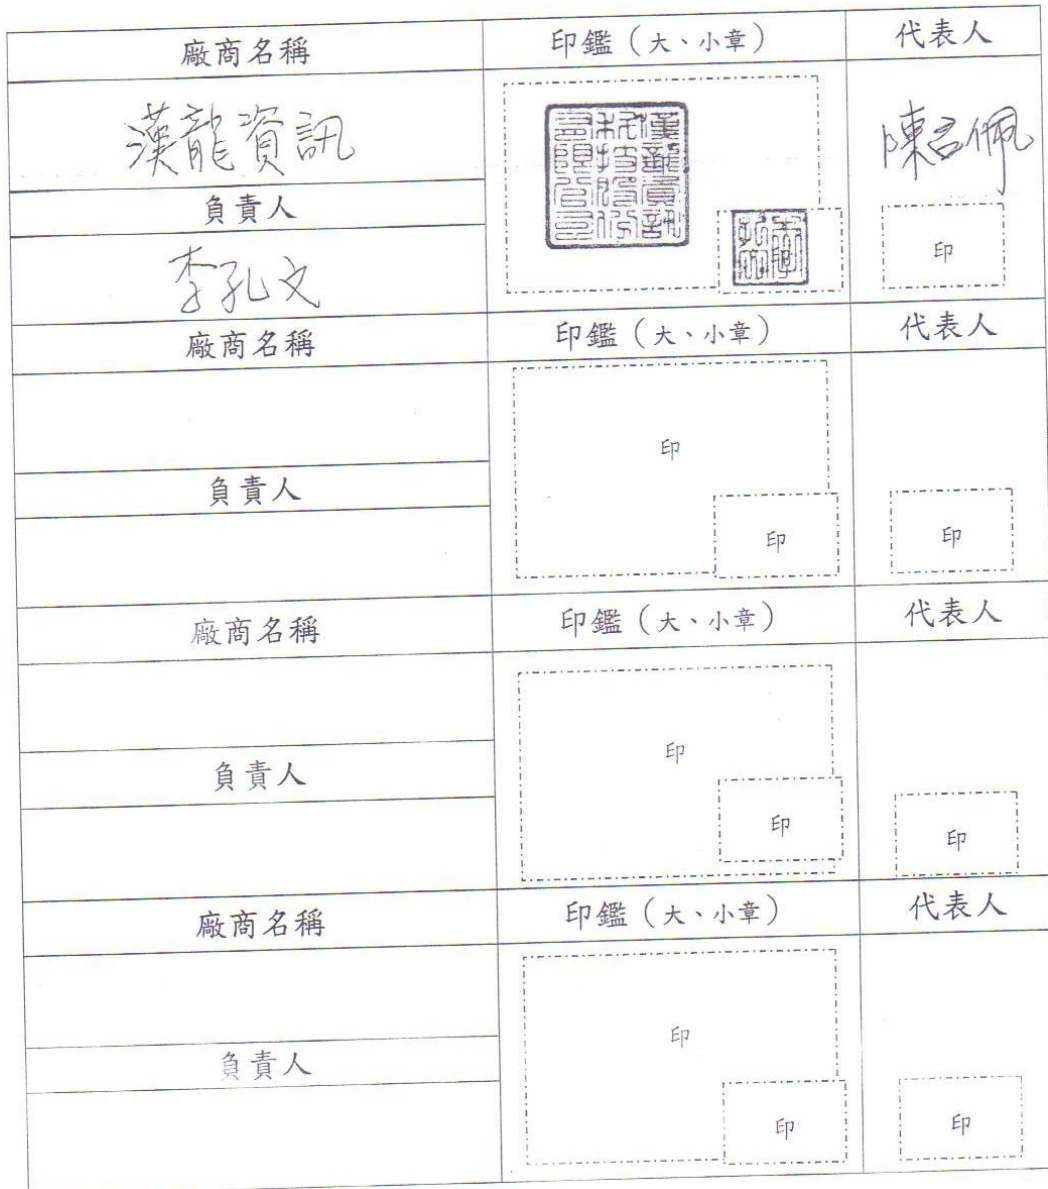 廠商名稱 印鑑（大、小章） 代表人
漢龍資訊
漢龍資訊
科技股份
有限公司
陳召佩
負責人
李孔文
印
廠商名稱 印鑑（大、小章） 代表人
印
負責人
印 印
廠商名稱 印鑑（大、小章） 代表人
印
負責人
印 印
廠商名稱 印鑑（大、小章） 代表人
印
負責人
印 印